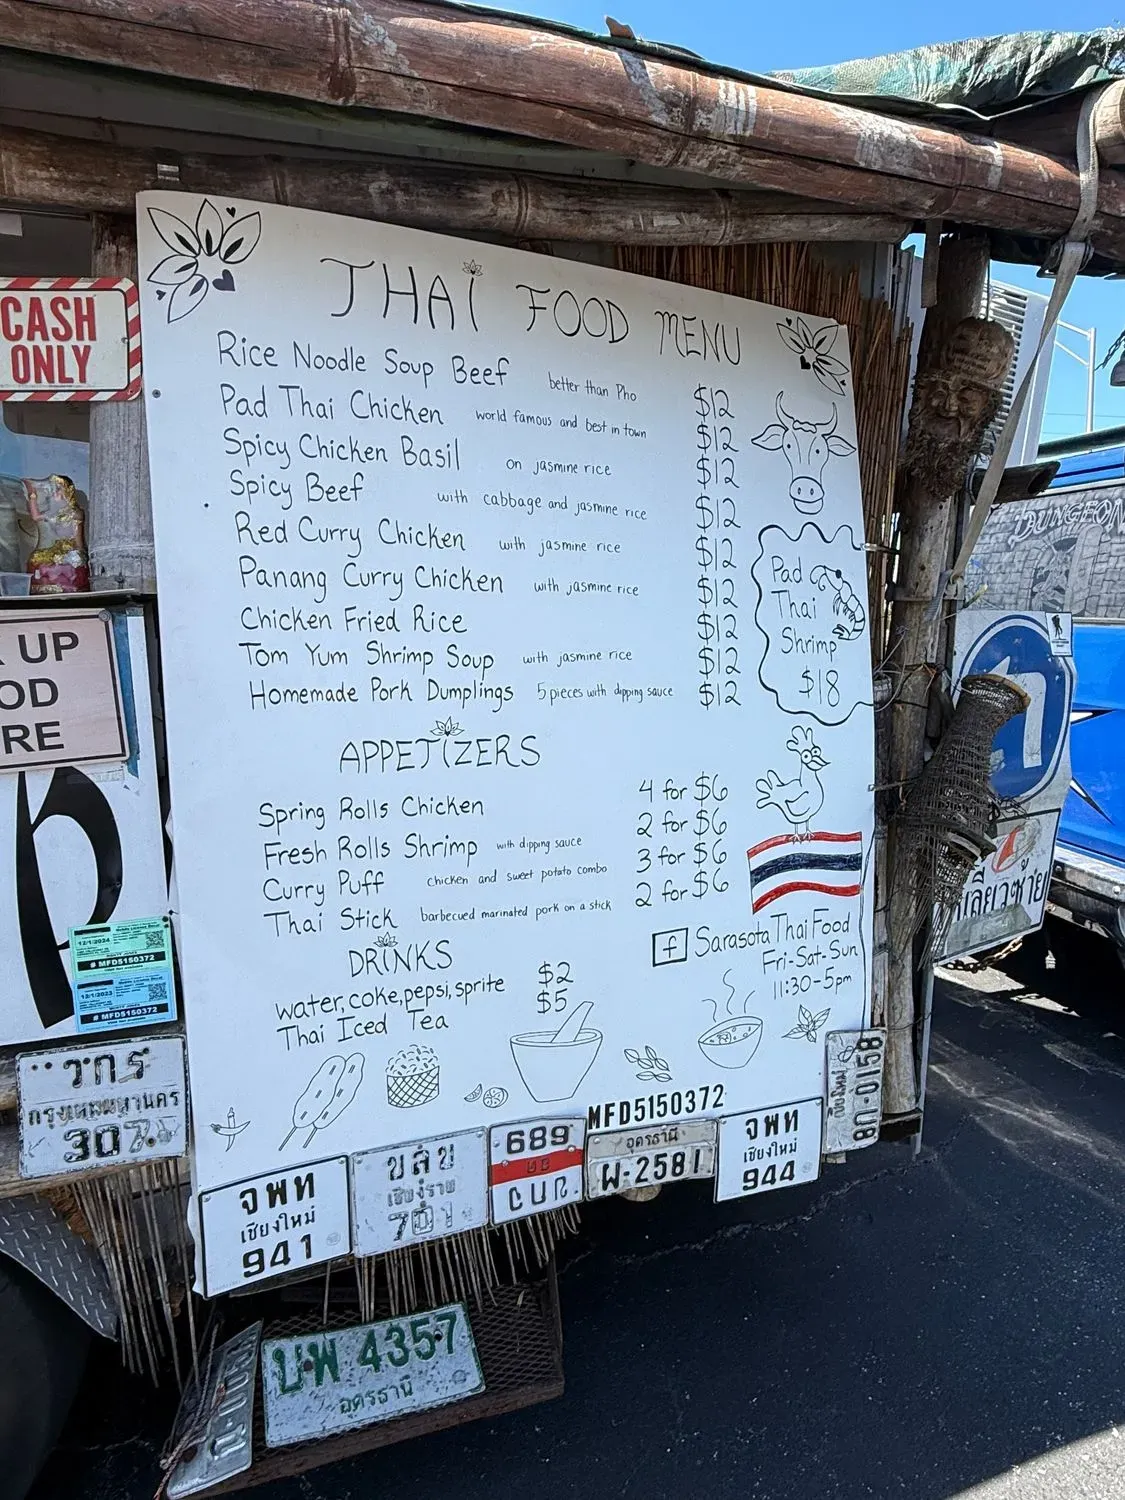 THAI FOOD MENU
CASH
ONLY
Rice Noodle Soup Beef better than Pho $12
Pad Thai Chicken world famous and best in town $12
Spicy Chicken Basil on jasmine rice $12
Spicy Beef with cabbage and jasmine rice $12
Red Curry Chicken with jasmine rice $12
Panang Curry Chicken with jasmine rice $12
Chicken Fried Rice $12
Tom Yum Shrimp Soup with jasmine rice $12
Homemade Pork Dumplings 5 pieces with dipping sauce $12
Pad
Thai
Shrimp
$18
UP
OD
RE
APPETIZERS
Spring Rolls Chicken 4 for $6
Fresh Rolls Shrimp with dipping sauce 2 for $6
Curry Puff chicken and sweet potato combo 3 for $6
Thai Stick barbecued marinated pork on a stick 2 for $6
DRINKS
water, coke, pepsi, sprite $2
Thai Iced Tea $5
f Sarasota Thai Food
Fri-Sat-Sun
11:30-5pm
DUNGEON
12/1/2024
# MFD5150372
12/1/2023
# MFD5150372
MFD5150372
วกร
กรุงเทพมหานคร
307
จพท
เชียงใหม่
941
ขลข
เชียงราย
701
689
อุดรธานี
ผ-2581
จพท
เชียงใหม่
944
80-0158
บพ 4357
อุดรธานี